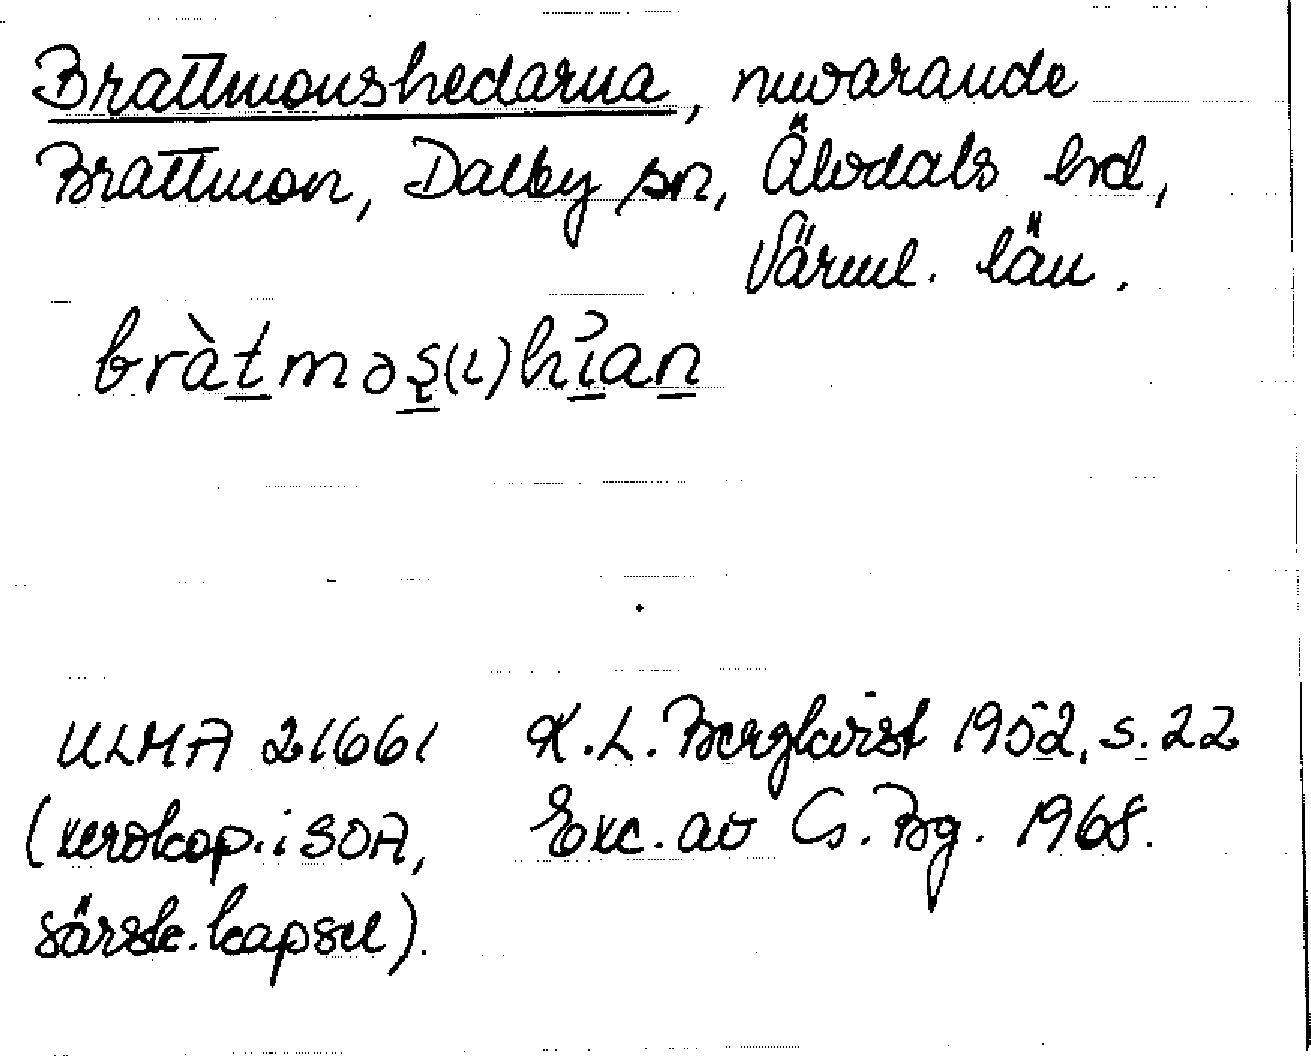 Brattmonshedarna, nuvarande
Brattmon, Dalby sn, Älvdals hd,
Värml. län.
bràtməs̨(t)hian
ULMA 21661 K.L. Bergkvist 1952, s. 22
(xerokop. i SOA, Exc. av G. Bg. 1968.
särsk. kapsel).